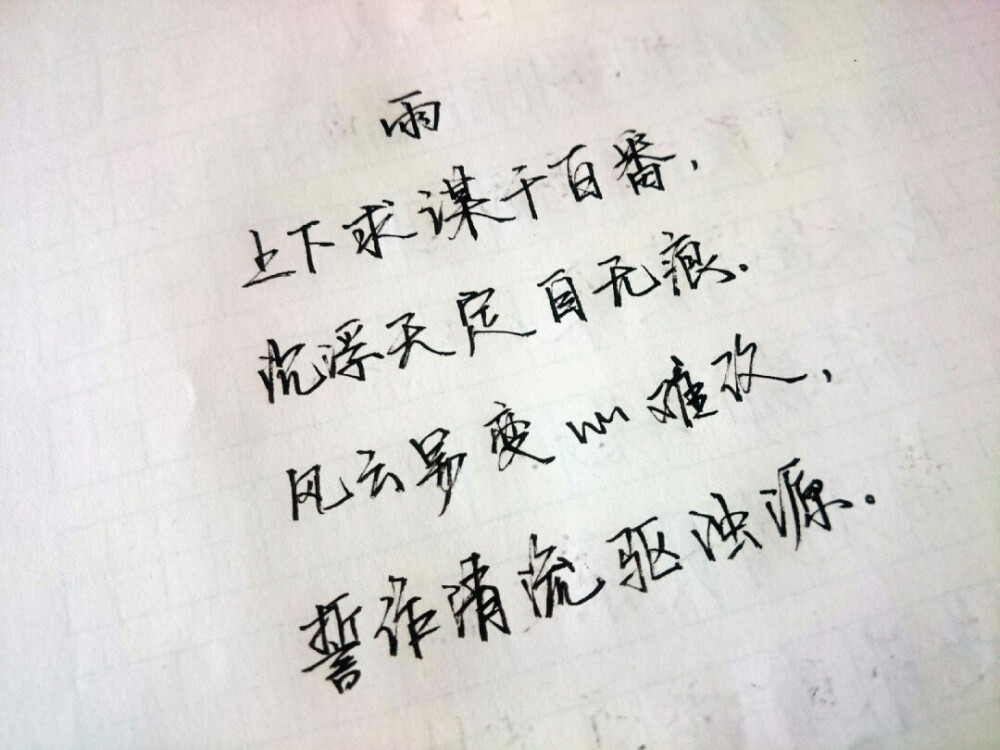 雨
上下求谋千百番，
沉浮天定自无痕。
风云易变心难改，
誓作清流驱浊源。